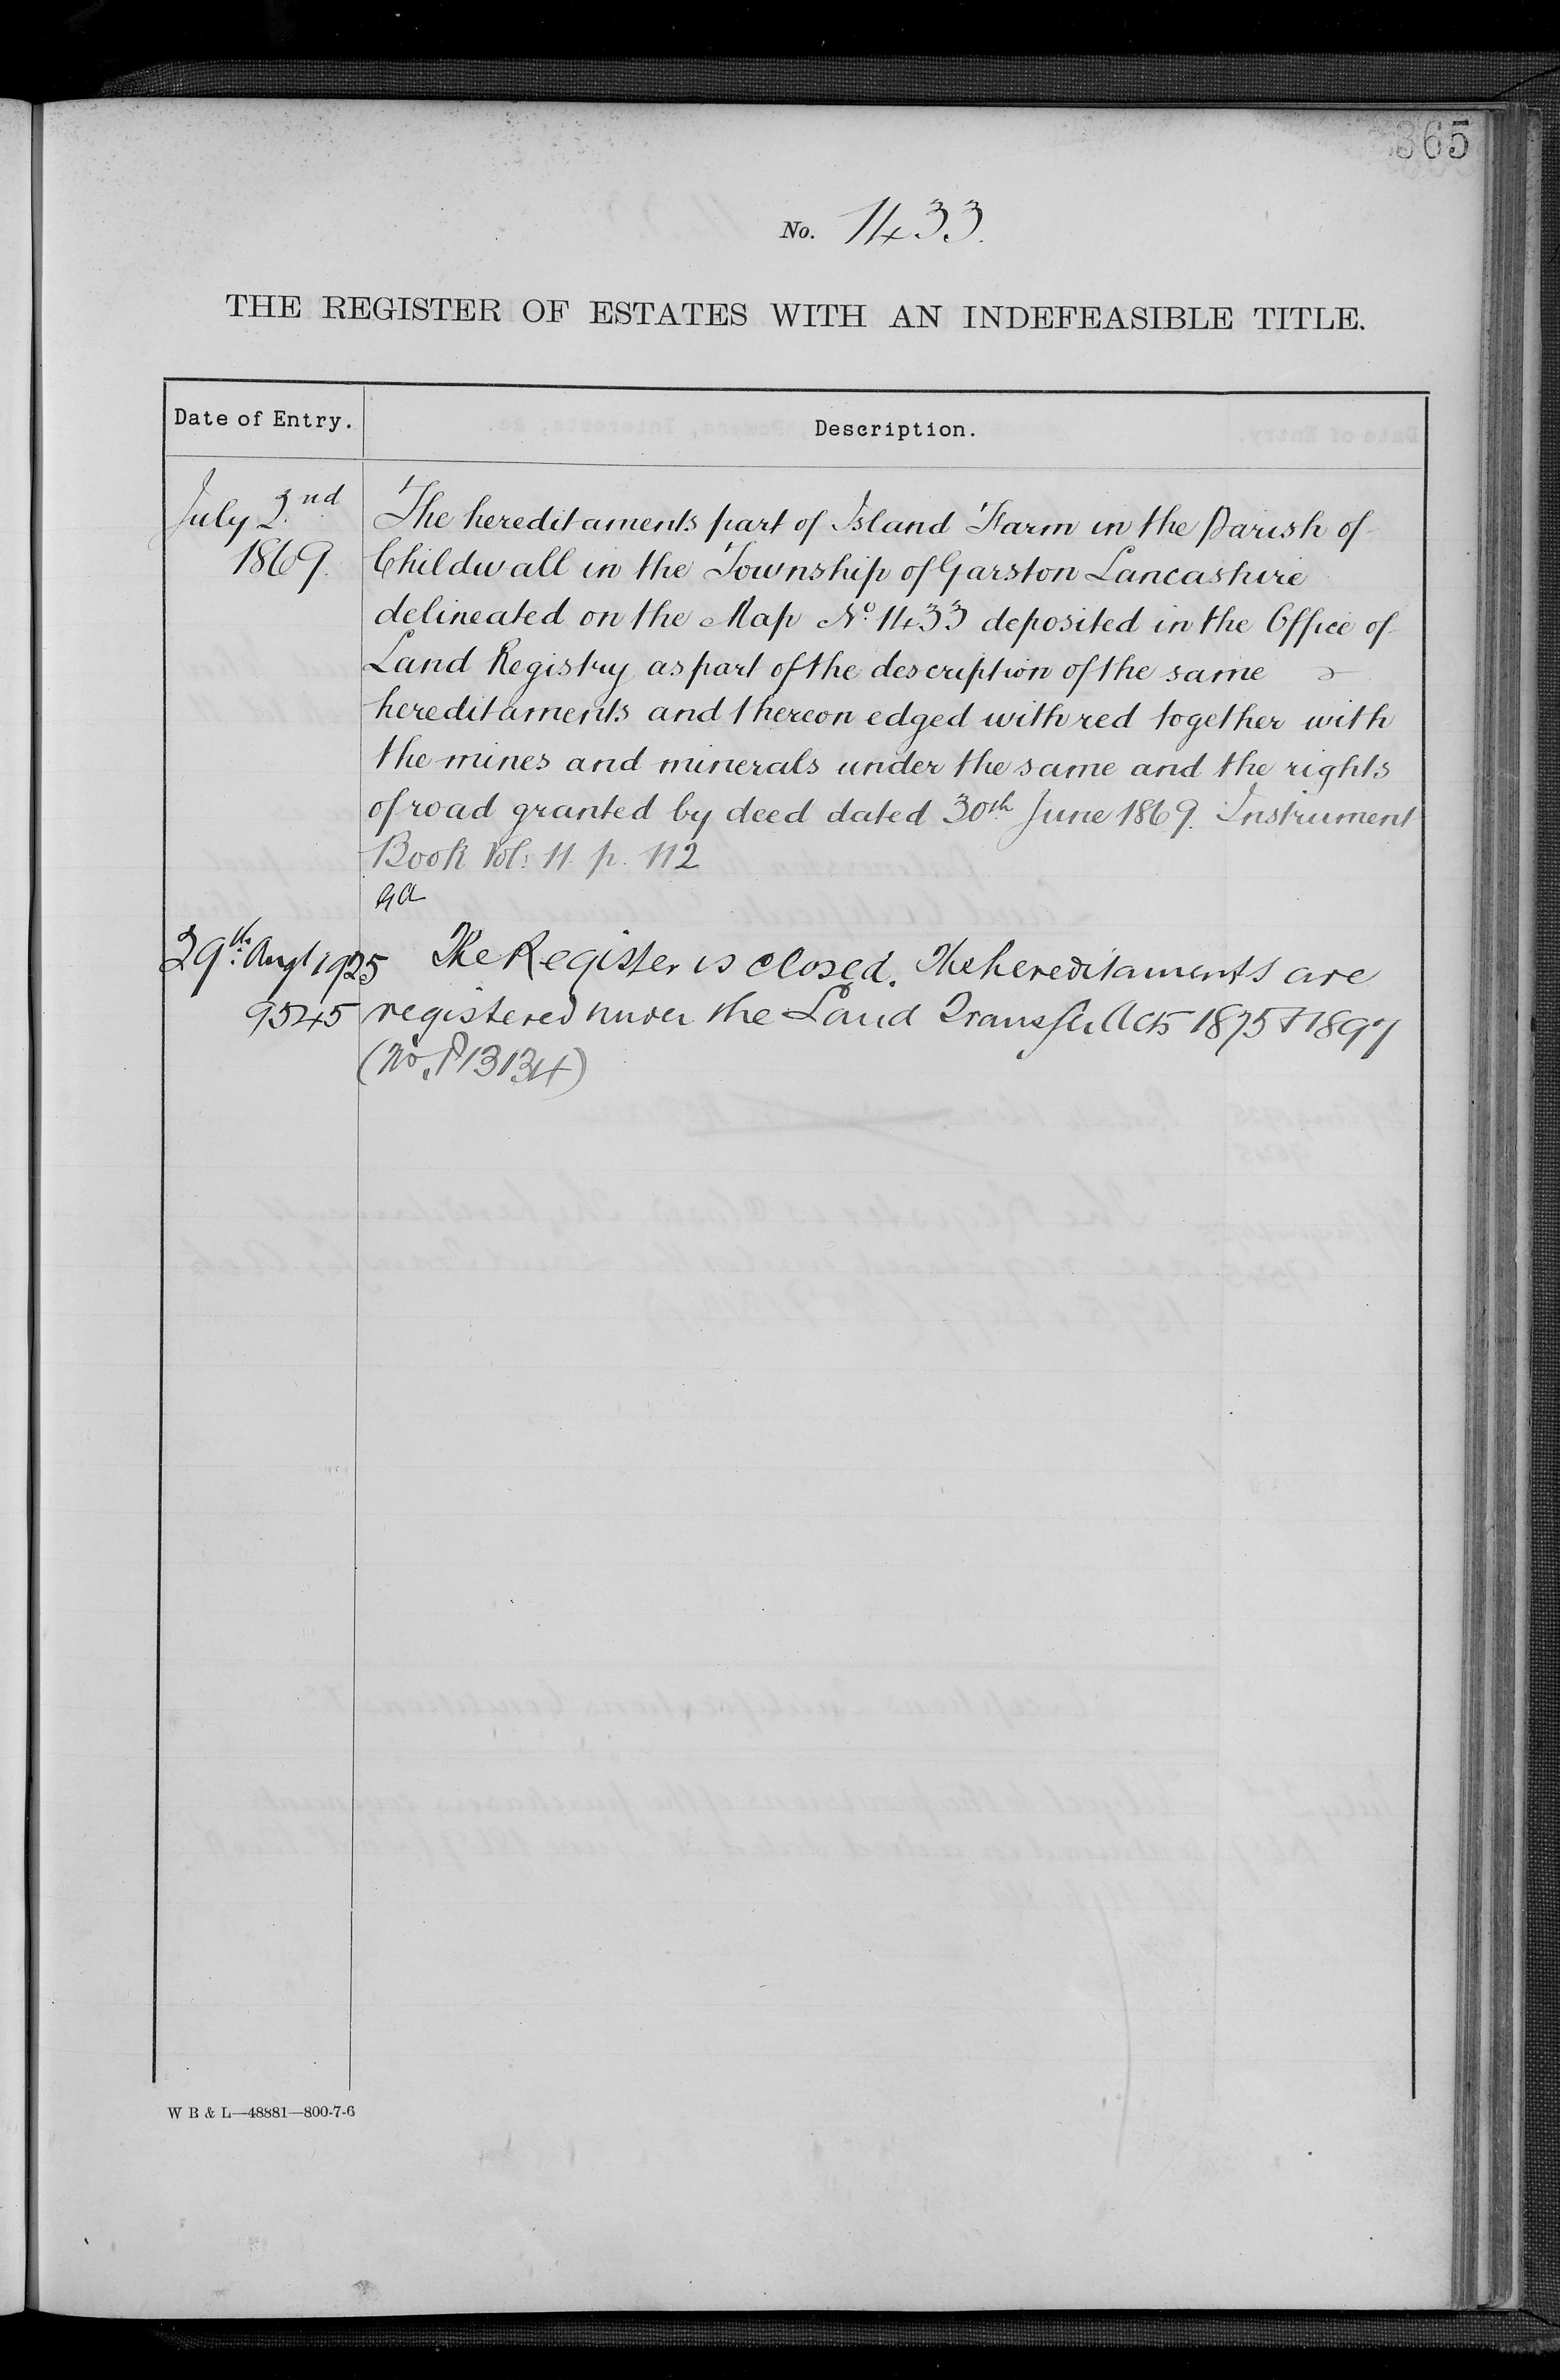 365
No. 1433.
THE REGISTER OF ESTATES WITH AN INDEFEASIBLE TITLE.
Date of Entry.
Description.
July 2nd
1869.
The hereditaments part of Island Farm in the Parish of
Childwall in the Township of Garston Lancashire
delineated on the Map No. 1433 deposited in the Office of
Land Registry as part of the description of the same
hereditaments and thereon edged with red together with
the mines and minerals under the same and the rights
of road granted by deed dated 30th June 1869. Instrument
Book Vol: 11. p. 112
29th Augt 1925
9545
The Register is closed. The hereditaments are
registered under the Land Transfer Acts 1875 & 1897
(No. P13134)
W B & L—48881—800-7-6